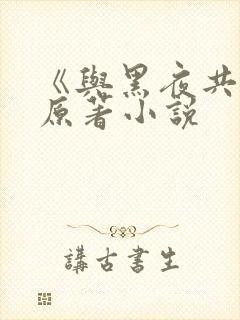 《與黑夜共
原著小説
講古書生